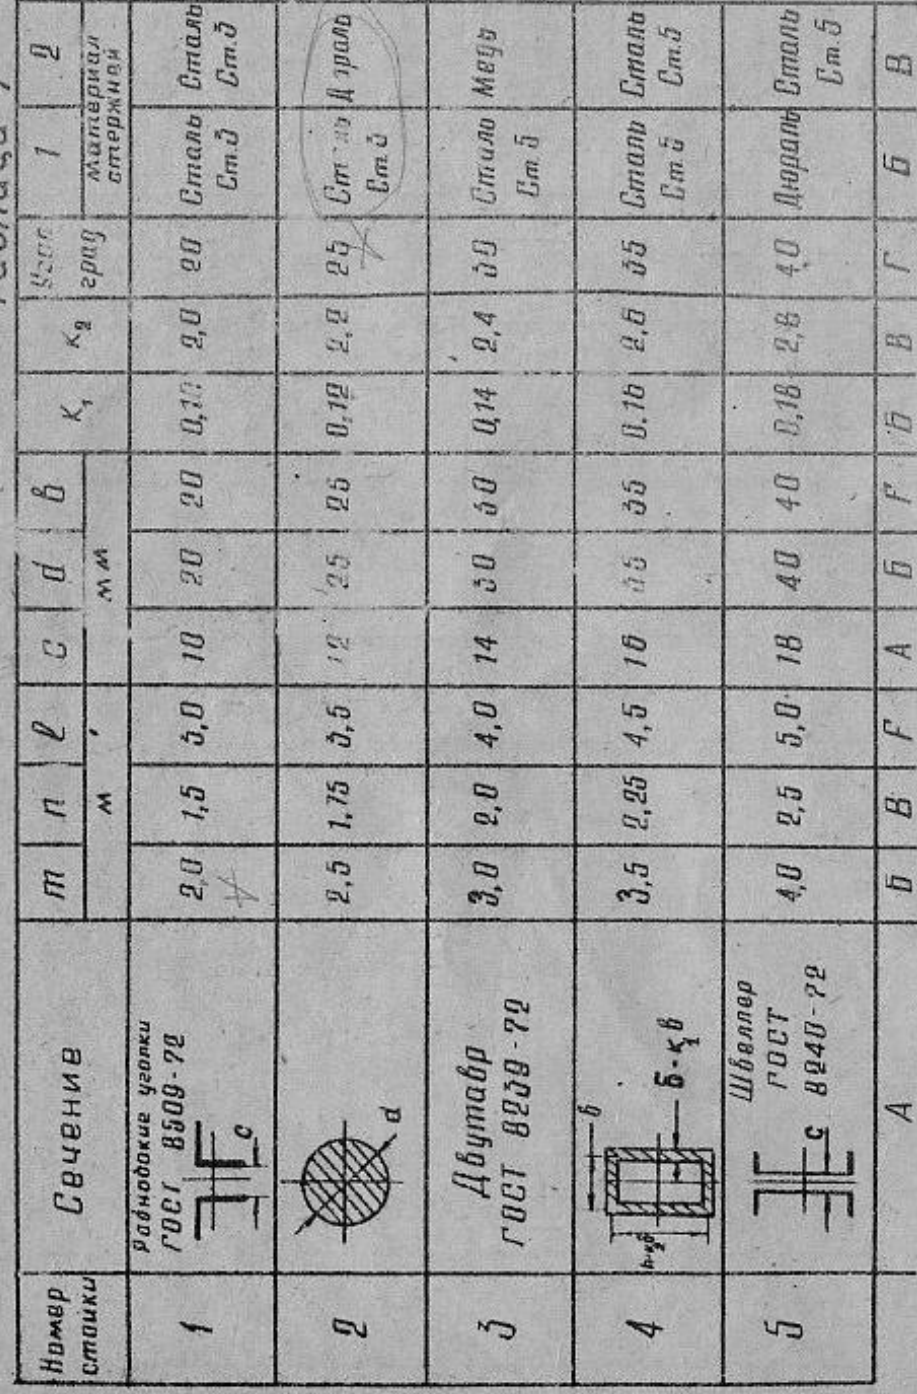 Номер стойки | Сечение | m | n | ℓ | c | d | b | K₁ | K₂ | град | 1 | 2
м | мм | Материал стержней
1 | Равнобокие уголки ГОСТ 8509-72 c | 2,0 | 1,5 | 3,0 | 10 | 20 | 20 | 20 | 2,0 | Сталь Ст.3 | Сталь Ст.3
2 | d | 2,5 | 1,75 | 3,5 | 12 | 25 | 25 | 0,12 | 2,2 | 25 | Ст.3
3 | Двутавр ГОСТ 8239-72 | 3,0 | 2,0 | 4,0 | 14 | 30 | 30 | 0,14 | 2,4 | 30 | Сталь Ст.3 | Медь
4 | b | 3,5 | 2,25 | 4,5 | 16 | 35 | 35 | 0,16 | 2,6 | 35 | Сталь Ст.3 | Сталь Ст.3
5 | Швеллер ГОСТ 8240-72 c | 4,0 | 2,5 | 5,0 | 18 | 40 | 40 | 0,18 | 2,8 | 40 | Дюраль | Сталь Ст.3
А | Б | В | Г | А | Б | Г | Б | В | Г | Б | В